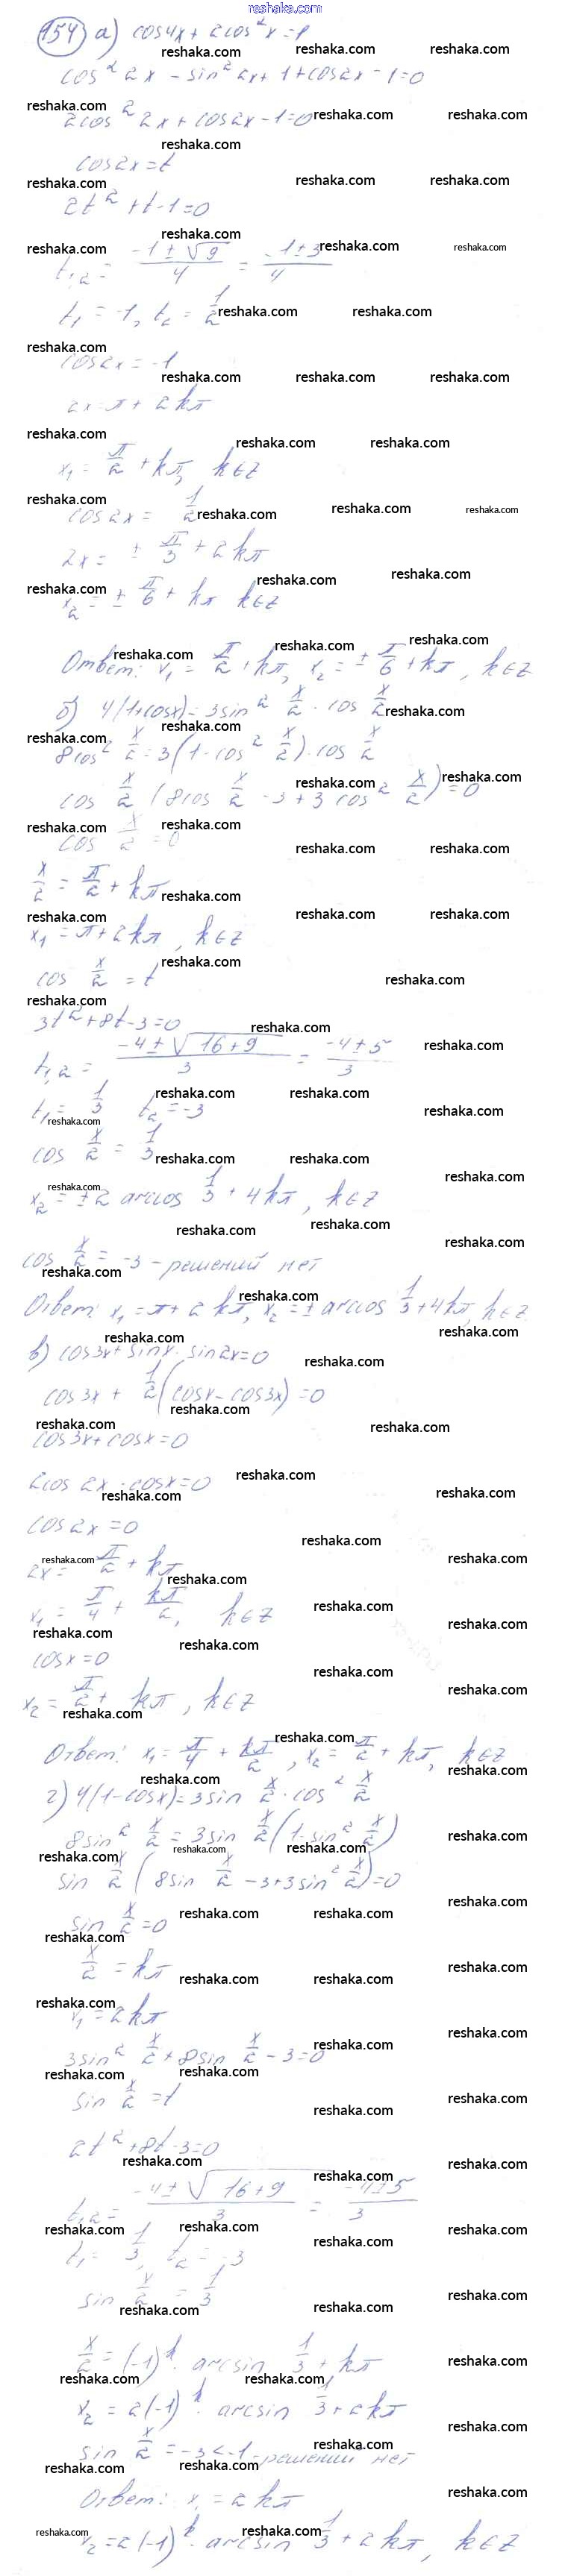 reshaka.com
154 а) cos4x + 2cos²x = 1
cos²2x - sin²2x + 1 + cos2x - 1 = 0
2cos²2x + cos2x - 1 = 0
cos2x = t
2t² + t - 1 = 0
t₁,₂ = (-1 ± √9)/4 = (-1 ± 3)/4
t₁ = -1, t₂ = 1/2
cos2x = -1
2x = π + 2kπ
x₁ = π/2 + kπ, k∈Z
cos2x = 1/2
2x = ± π/3 + 2kπ
x₂ = ± π/6 + kπ k∈Z
Ответ: x₁ = π/2 + kπ, x₂ = ± π/6 + kπ, k∈Z
б) 4(1+cosx) = 3sin² x/2 · cos x/2
8cos² x/2 = 3(1 - cos² x/2) · cos x/2
cos x/2 (8cos x/2 - 3 + 3cos² x/2) = 0
cos x/2 = 0
x/2 = π/2 + kπ
x₁ = π + 2kπ, k∈Z
cos x/2 = t
3t² + 8t - 3 = 0
t₁,₂ = (-4 ± √(16+9))/3 = (-4 ± 5)/3
t₁ = 1/3 t₂ = -3
cos x/2 = 1/3
x₂ = ±2 arccos 1/3 + 4kπ, k∈Z
cos x/2 = -3 - решений нет
Ответ: x₁ = π + 2kπ, x₂ = ± arccos 1/3 + 4kπ, k∈Z
в) cos3x + sinx · sin2x = 0
cos3x + 1/2 (cosx - cos3x) = 0
cos3x + cosx = 0
2cos2x · cosx = 0
cos2x = 0
2x = π/2 + kπ
x₁ = π/4 + kπ/2, k∈Z
cosx = 0
x₂ = π/2 + kπ, k∈Z
Ответ: x₁ = π/4 + kπ/2, x₂ = π/2 + kπ, k∈Z
г) 4(1-cosx) = 3sin x/2 · cos² x/2
8sin² x/2 = 3sin x/2 (1 - sin² x/2)
sin x/2 (8sin x/2 - 3 + 3sin² x/2) = 0
sin x/2 = 0
x/2 = kπ
x₁ = 2kπ
3sin² x/2 + 8sin x/2 - 3 = 0
sin x/2 = t
2t² + 8t - 3 = 0
t₁,₂ = (-4 ± √(16+9))/3 = (-4 ± 5)/3
t₁ = 1/3, t₂ = -3
sin x/2 = 1/3
x/2 = (-1)ᵏ · arcsin 1/3 + kπ
x₂ = 2(-1)ᵏ · arcsin 1/3 + 2kπ
sin x/2 = -3 < -1 - решений нет
Ответ: x₁ = 2kπ
x₂ = 2(-1)ᵏ · arcsin 1/3 + 2kπ, k∈Z